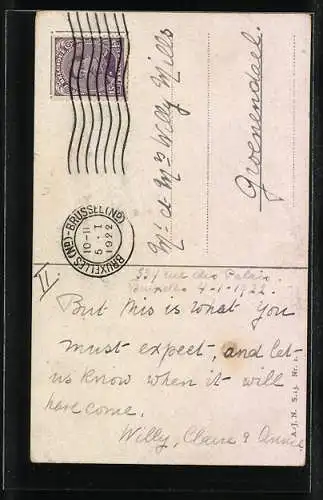 BRUXELLES (ND) - BRUSSEL (ND)
10-11
5 · I
1922
Mr & Mrs Willy Mills
Groenendael.
II.
331 rue des Palais
Bruxelles 4-1-1922
But this is what you
must expect, and let
us know when it will
have come.
Willy, Claire & Annie
A.J.N. S.15. Nr. 1.